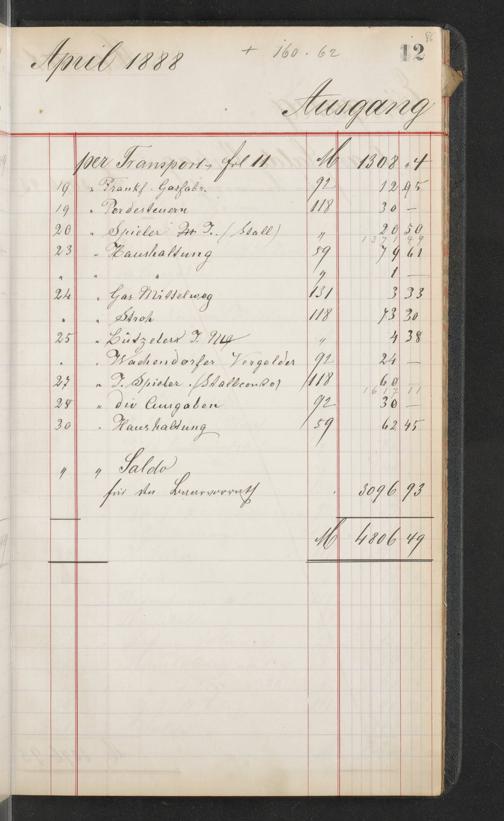 April 1888 + 160.62 12
Ausgang
per Transport fol 11 M 1308 4
19 " Frankf. Gasfabr. 92 12 95
19 " Pferdesteuern 118 30 —
20 " Spieler J. (Stall) " 20 50
1371 99
23 " Haushaltung 59 79 61
" " " " 1 —
24 " Gas Mittelweg 131 3 33
" " Stroh 118 73 30
25 " J. " 4 38
" " Wachendorfer Vergolder 92 24 —
27 " J. Spieler (Stallconto) 118 60
1617 11
28 " div Ausgaben 92 30 —
30 " Haushaltung 59 62 45
" " Saldo
für den Baarvorrath 3096 93
M 4806 49